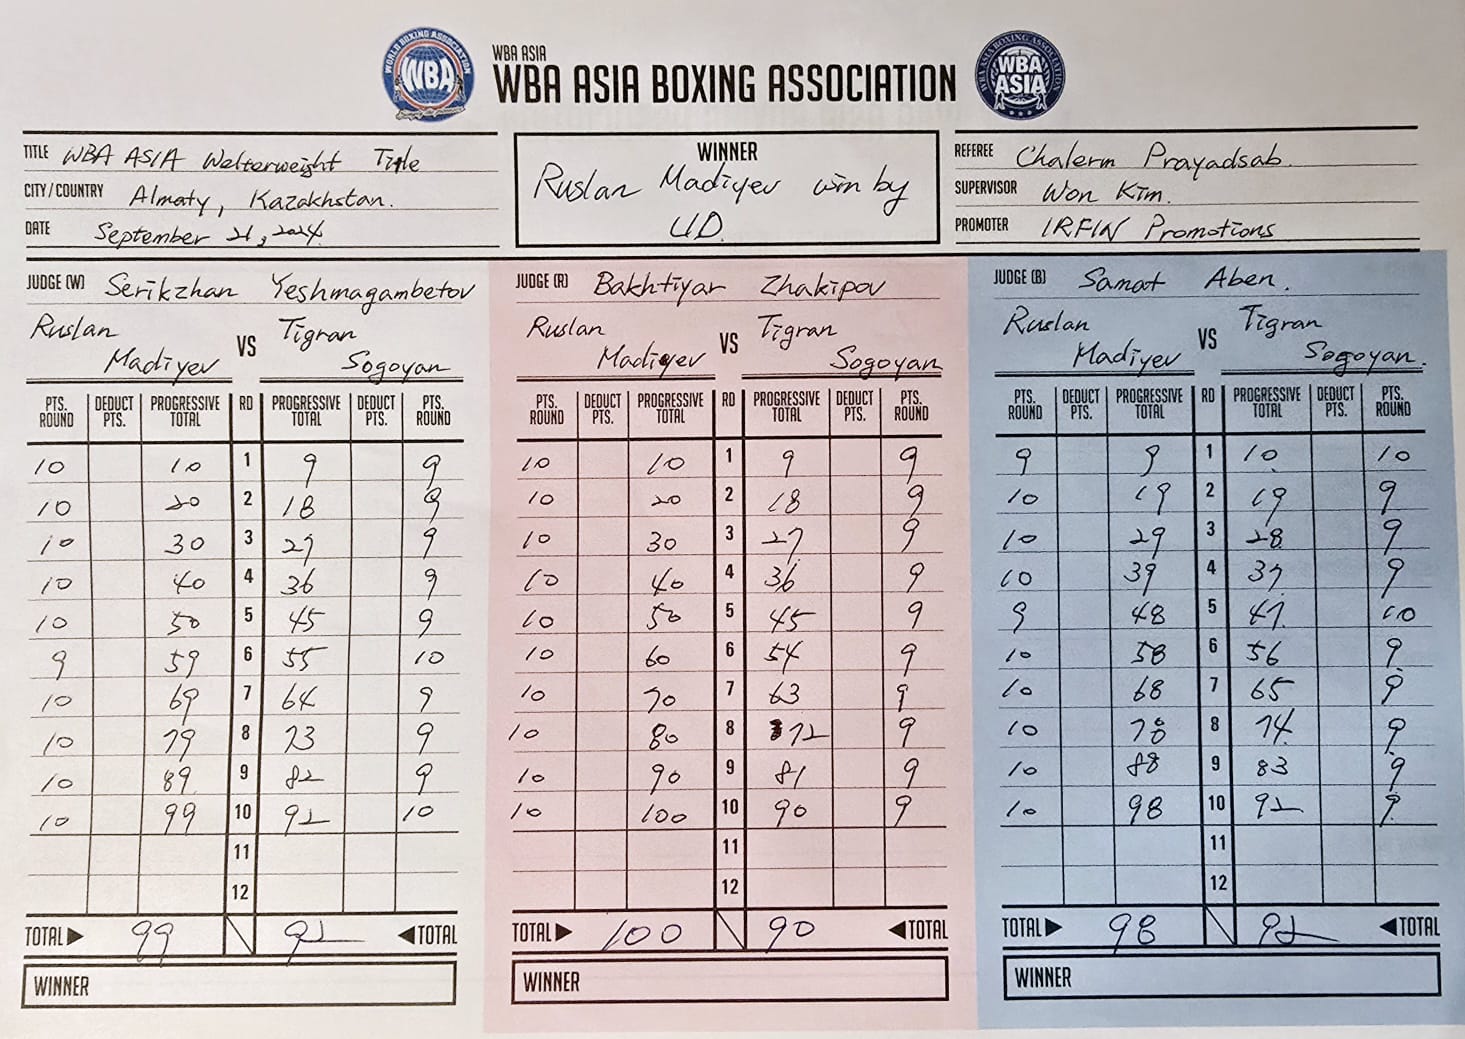 WORLD BOXING ASSOCIATION
WBA
WBA ASIA
WBA ASIA BOXING ASSOCIATION
WBA ASIA BOXING ASSOCIATION
WBA
ASIA
TITLE WBA ASIA Welterweight Title
CITY/COUNTRY Almaty, Kazakhstan.
DATE September 21, 2024
WINNER
Ruslan Madiyev win by
UD.
REFEREE Chalerm Prayadsab
SUPERVISOR Won Kim.
PROMOTER IRFIN Promotions
JUDGE (W) Serikzhan Yeshmagambetov
Ruslan Madiyev VS Tigran Sogoyan
PTS. ROUND DEDUCT PTS. PROGRESSIVE TOTAL RD PROGRESSIVE TOTAL DEDUCT PTS. PTS. ROUND
10 10 1 9 9
10 20 2 18 9
10 30 3 27 9
10 40 4 36 9
10 50 5 45 9
9 59 6 55 10
10 69 7 64 9
10 79 8 73 9
10 89 9 82 9
10 99 10 92 10
11
12
TOTAL 99 92 TOTAL
WINNER
JUDGE (R) Bakhtiyar Zhakipov
Ruslan Madiyev VS Tigran Sogoyan
PTS. ROUND DEDUCT PTS. PROGRESSIVE TOTAL RD PROGRESSIVE TOTAL DEDUCT PTS. PTS. ROUND
10 10 1 9 9
10 20 2 18 9
10 30 3 27 9
10 40 4 36 9
10 50 5 45 9
10 60 6 54 9
10 70 7 63 9
10 80 8 72 9
10 90 9 81 9
10 100 10 90 9
11
12
TOTAL 100 90 TOTAL
WINNER
JUDGE (B) Samat Aben.
Ruslan Madiyev VS Tigran Sogoyan.
PTS. ROUND DEDUCT PTS. PROGRESSIVE TOTAL RD PROGRESSIVE TOTAL DEDUCT PTS. PTS. ROUND
9 9 1 10 10
10 19 2 19 9
10 29 3 28 9
10 39 4 37 9
9 48 5 47 10
10 58 6 56 9
10 68 7 65 9
10 78 8 74 9
10 88 9 83 9
10 98 10 92 9
11
12
TOTAL 98 92 TOTAL
WINNER